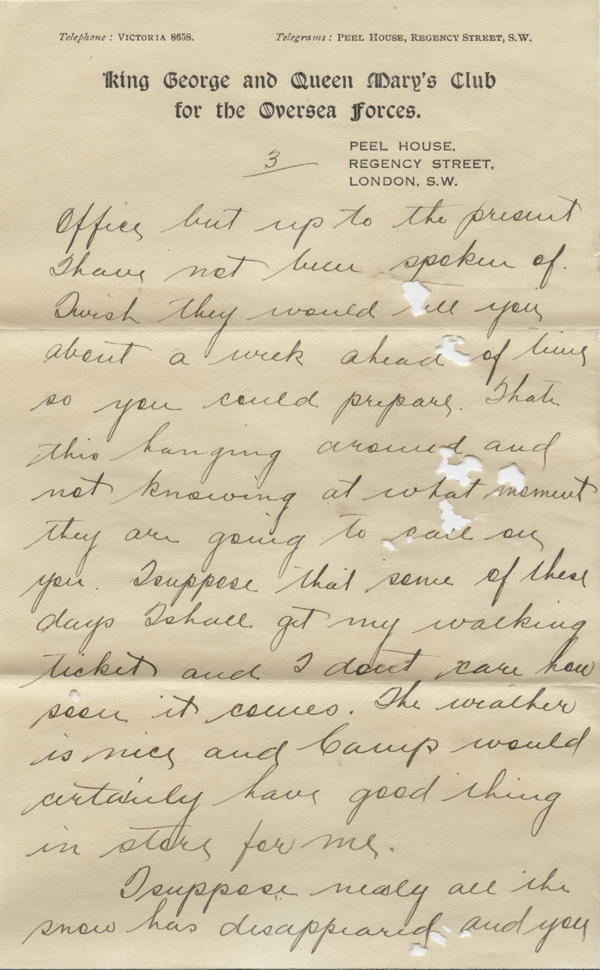 Telephone: VICTORIA 8658. Telegrams: PEEL HOUSE, REGENCY STREET, S.W.
King George and Queen Mary's Club
for the Oversea Forces.
PEEL HOUSE,
3 REGENCY STREET,
LONDON, S.W.
Office but up to the present
I have not been spoken of.
I wish they would tell you
about a week ahead of time
so you could prepare.
this hanging around and
not knowing at what moment
they are going to call on
you. I suppose that some of these
days I shall get my walking
ticket and I dont care how
soon it comes. The weather
is nice and Camp would
certainly have good thing
in store for me.
I suppose nealy all the
snow has disappeared and you